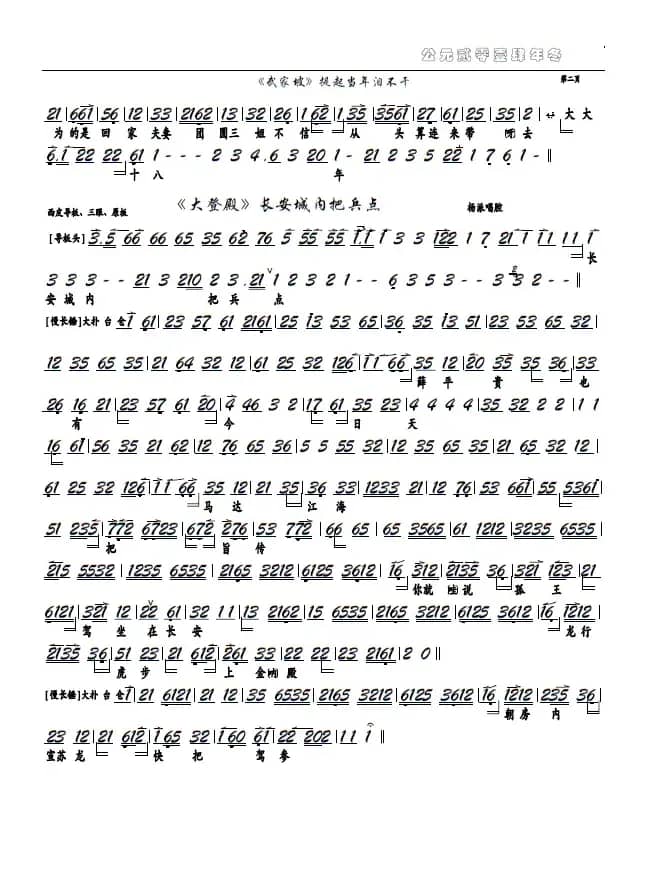 公元贰零壹肆年冬
《武家坡》提起当年泪不干 第二页
21|661|56 12|33 2162|13 32|1 62|1 35|3561|27 61|25 35|2 大大
为的是回家 夫妻 团圆三姐不信 从 头算连来带 去
6.1 22 22 61 1 - - - 2 3 4.6 3 20 1 - 2 4 3 5 22 1 7 6 1 -‖
十八 年
西皮导板、三眼、原板 《大登殿》长安城内把兵点 杨派唱腔
[导板头] 3.5 66 66 65 35 62 76 5 55 55 1.1 1 3 3 122 1 7 21 1 1 1 11 1
长
3 3 3 - - 21 3 210 2 3.21 1 2 3 2 1 - - 6 3 5 3 - - 3 32 - -‖
安城内 把兵点
[慢长锤]大扑 台 仓1 61|23 57 61 2161|25 13 53 65|36 35 13 21|23 53 65 32|
12 35 65 35|21 64 32 12|61 25 32 126|11 66 35 12|20 35 35 36|33
薛平贵 也
26 16 21|23 57 61 20|4 46 3 2|17 61 35 23|4 4 4 4|35 32 2 2|1 1
有 今 日 天
16 61|56 35 21 62|12 76 65 36|5 5 55 32|12 35 65 35|21 65 32 12|
61 25 32 126|11 66 35 12|21 35 36 33|1233 21 12 76|53 661|55 5361|
马达 江海
51 235|772 6723|672 276|53 772|66 65|65 3565|61 1212|3235 6535|
把 旨传
2115 5532|1235 6535|2165 3212|6125 3612|16 312|2135 36|323 21|
你就 说 孤王
6121|321 12|22 61|32 11|13 2162|15 6535|2165 3212|6125 3612|16 1212|
驾坐在长安 龙行
2135 36|51 23|21 612|12 23|22 23|23 2161|2 0|
虎步 上金 殿
[慢长锤]大扑 台 仓1|21 6121|21 12|35 6535|2165 3212|6125 3612|16 1212|235 36|
朝房内
23 12|21 612|165 32|160 61|22 202|11 1‖
宣苏龙 快把 驾参